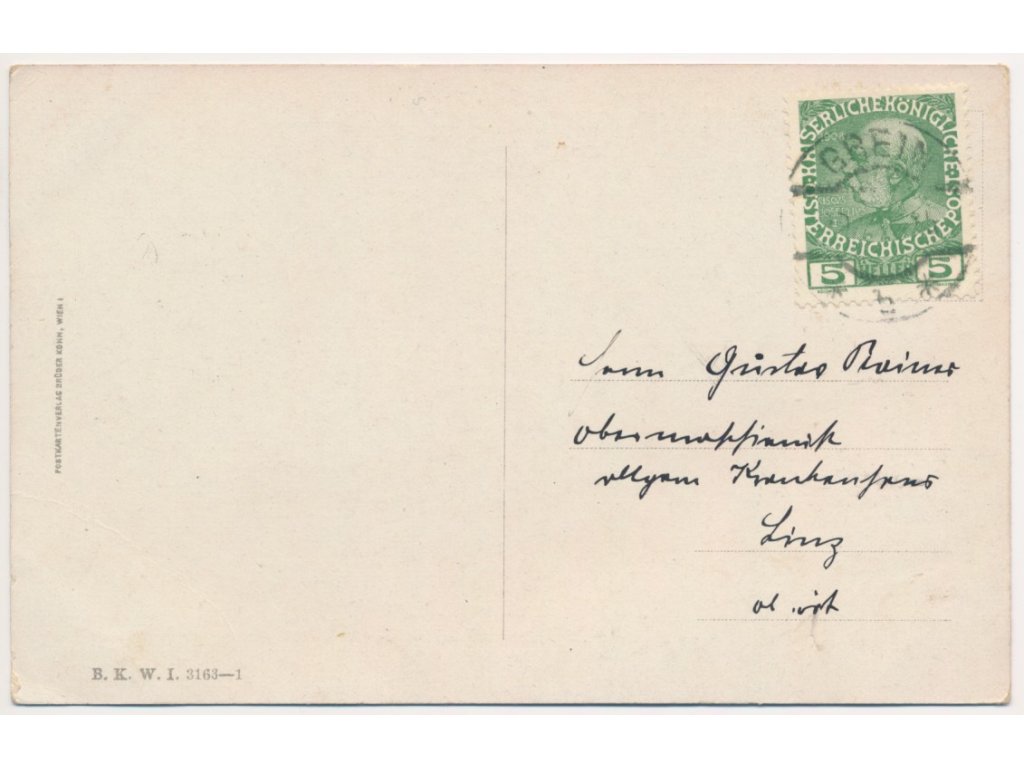 KAISERLICHE KÖNIGLICHE ÖSTERREICHISCHE POST
GREIN
5 HELLER 5
* b *
POSTKARTENVERLAG BRÜDER KOHN, WIEN I
Herrn Gustav Rainer
Obermaschienist
allgem Krankenhaus
Linz
B. K. W. I. 3163—1